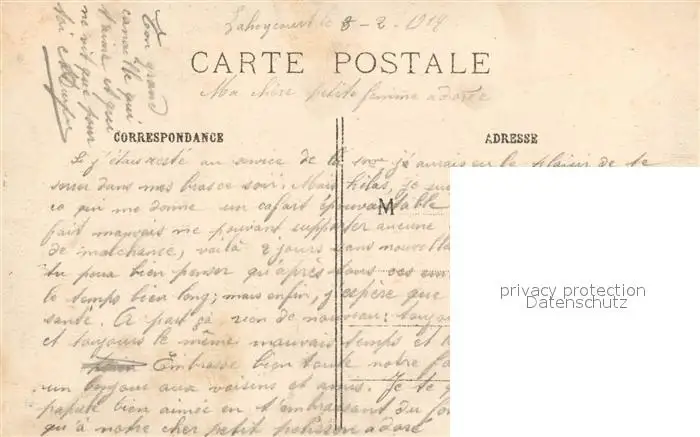 le 8-2-1919
CARTE POSTALE
Ma chère petite femme adorée
CORRESPONDANCE
ADRESSE
Si j'étais resté au service de la je aurais eu le plaisir de te
serrer dans mes bras ce soir. Mais hélas, je
ce qui me donne un cafard épouvantable
M
fait mauvais ne pouvant supporter aucune
de malchance, voilà 2 jours sans nouvelles
tu peux bien penser qu'après tous ces
le temps bien long; mais enfin, j'espère que
santé. A part ça, rien de nouveau; toujours
et toujours le même mauvais temps et
Embrasse bien toute notre
un bonjour aux voisins et amis. Je te
bien aimée en t'embrassant du
qu'à notre cher petit polisson adoré
Ton grand
canaille qui
t'aime et qui
ne vit que pour
toi
privacy protection
Datenschutz